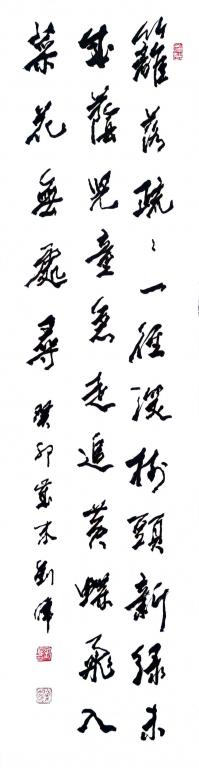 籬落疏〻一徑深樹頭新綠未
成蔭兒童急走追黃蝶飛入
菜花無處尋 癸卯 劉偉